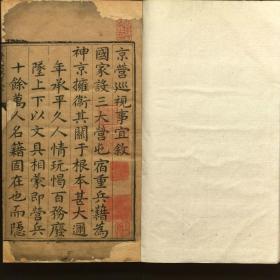 京營巡視事宜敘
國家設三大營屯宿重兵藉為
神京擁衛其關于根本甚大邇
年承平久人情玩愒百務廢
墜上下以文具相蒙即營兵
十餘萬人名藉固在也而隱